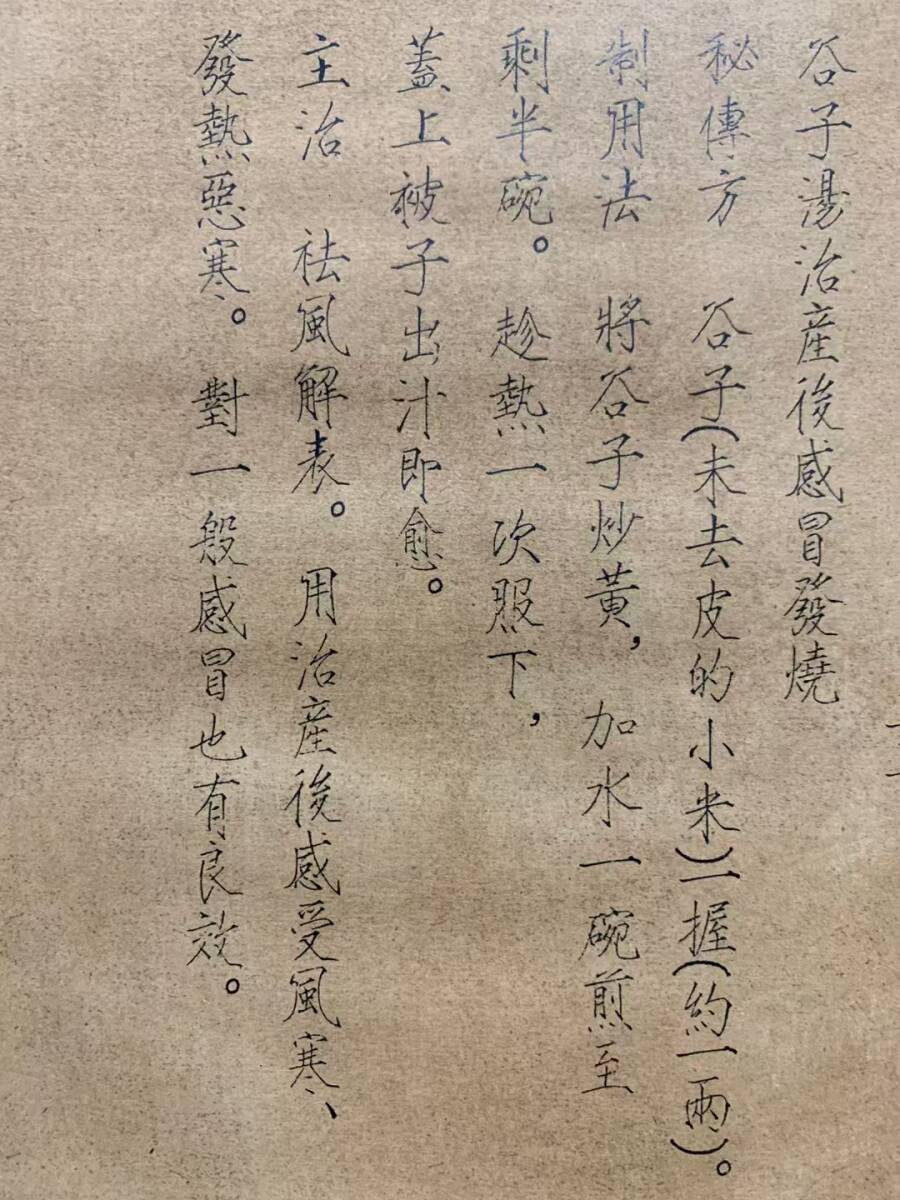 谷子湯治産後感冒發燒
秘傳方 谷子(未去皮的小米)一握(約一兩)。
制用法 將谷子炒黃，加水一碗煎至
剩半碗。趁熱一次服下，
蓋上被子出汁即愈。
主治 祛風解表。用治産後感受風寒、
發熱惡寒。對一般感冒也有良效。